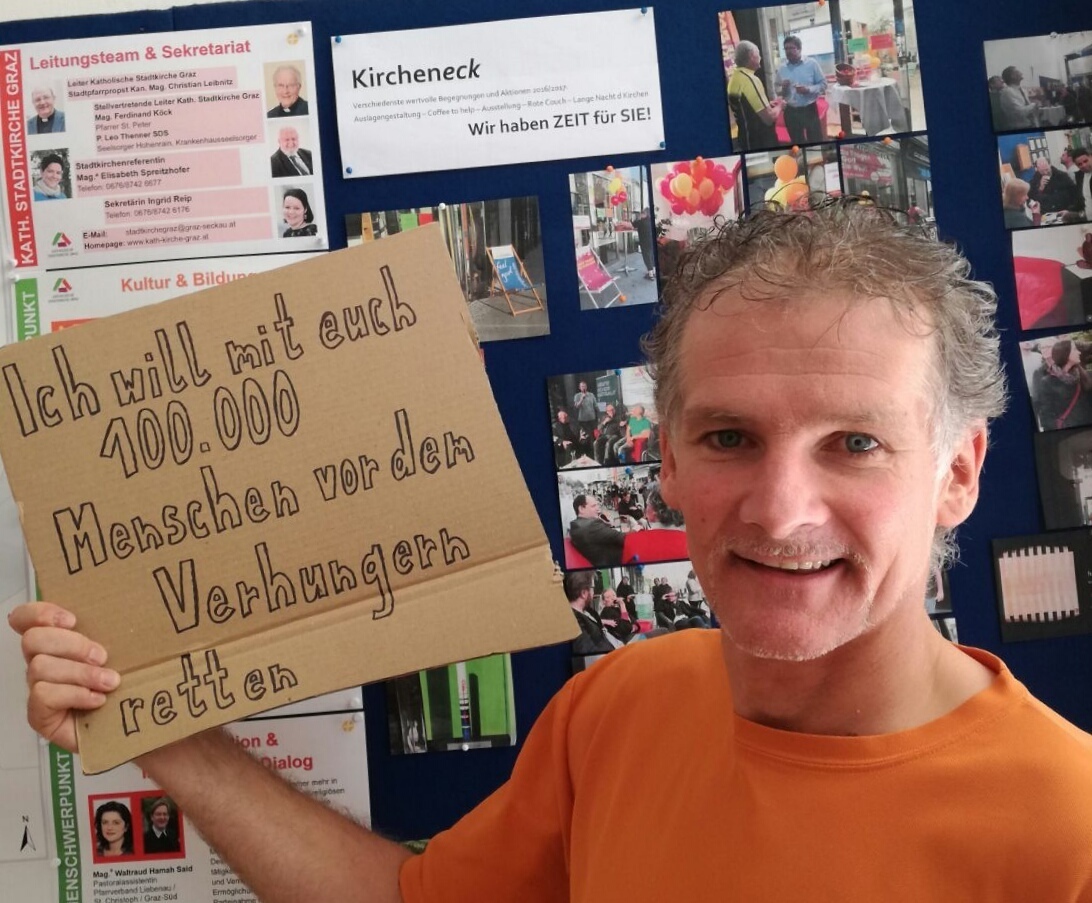 KATH. STADTKIRCHE GRAZ
Leitungsteam & Sekretariat
Leiter Katholische Stadtkirche Graz
Stadtpfarrpropst Kan. Mag. Christian Leibnitz
Stellvertretende Leiter Kath. Stadtkirche Graz
Mag. Ferdinand Köck
Pfarrer St. Peter
P. Leo Thenner SDS
Seelsorger Hohenrain, Krankenhausseelsorger
Stadtkirchenreferentin
Mag.ª Elisabeth Spreitzhofer
Telefon: 0676/8742 6677
Sekretärin Ingrid Reip
Telefon: 0676/8742 6176
E-Mail: stadtkirchegraz@graz-seckau.at
Homepage: www.kath-kirche-graz.at
Kultur & Bildung
PUNKT
Kircheneck
Verschiedenste wertvolle Begegnungen und Aktionen 2016/2017:
Auslagengestaltung – Coffee to help – Ausstellung – Rote Couch – Lange Nacht d Kirchen
Wir haben ZEIT für SIE!
Ich will mit euch
100.000
Menschen vor dem
Verhungern
retten
ion &
Dialog
MENSCHWERPUNKT
Mag.ª Waltraud Hamah Said
Pastoralassistentin
Pfarrverband Liebenau /
St. Christoph / Graz-Süd
N